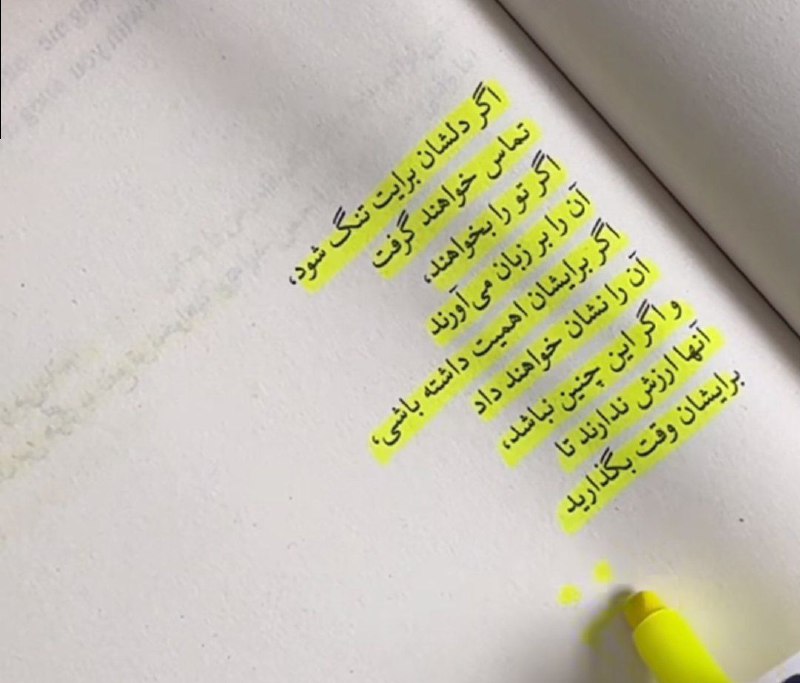 اگر دلشان برایت تنگ شود،
تماس خواهند گرفت
اگر تو را بخواهند،
آن را بر زبان می‌آورند
اگر برایشان اهمیت داشته باشی؛
آن را نشان خواهند داد
و اگر این چنین نباشد،
آنها ارزش ندارند تا
برایشان وقت بگذارید